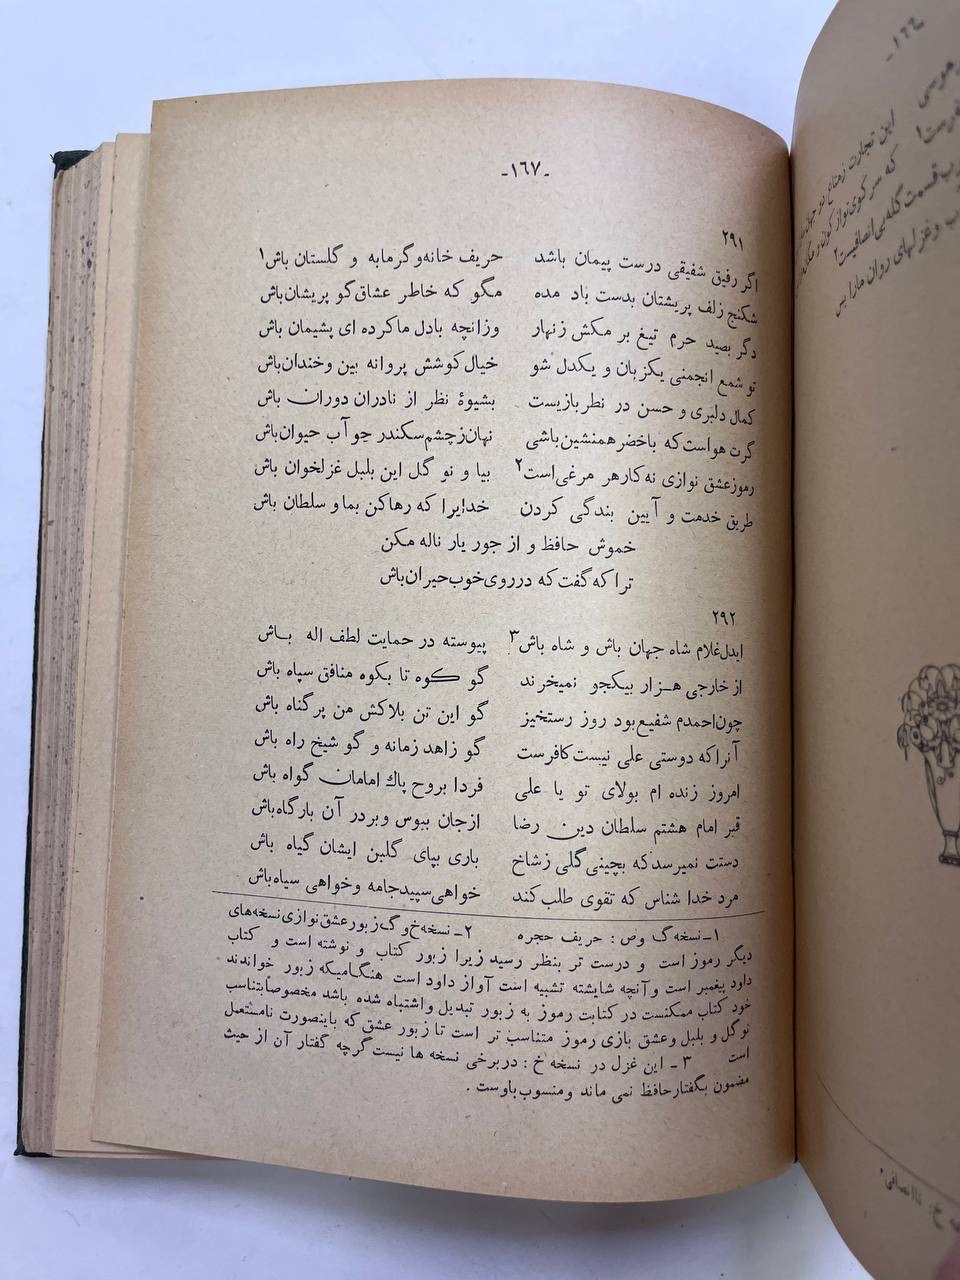 -۱۶۷-
۲۹۱
اگر رفیق شفیقی درست پیمان باشد حریف خانه و گرمابه و گلستان باش۱
شکنج زلف پریشتان بدست باد مده مگو که خاطر عشاق گو پریشان باش
دگر بصید حرم تیغ بر مکش زنهار وزانچه بادل ما کرده ای پشیمان باش
تو شمع انجمنی یکزبان و یکدل شو خیال کوشش پروانه بین وخندان باش
کمال دلبری و حسن در نظر بازیست بشیوهٔ نظر از نادران دوران باش
گرت هواست که باخضر همنشین باشی نهان زچشم سکندر چو آب حیوان باش
رموز عشق نوازی نه کار هر مرغی است۲ بیا و نو گل این بلبل غزلخوان باش
طریق خدمت و آیین بندگی کردن خدایرا که رها کن بما و سلطان باش
خموش حافظ و از جور یار ناله مکن
ترا که گفت که در روی خوب حیران باش
۲۹۲
ایدل غلام شاه جهان باش و شاه باش۳ پیوسته در حمایت لطف اله باش
از خارجی هزار بیکجو نمیخرند گو کوه تا بکوه منافق سپاه باش
چون احمدم شفیع بود روز رستخیز گو این تن بلاکش من پر گناه باش
آنرا که دوستی علی نیست کافرست گو زاهد زمانه و گو شیخ راه باش
امروز زنده ام بولای تو یا علی فردا بروح پاك امامان گواه باش
قبر امام هشتم سلطان دین رضا ازجان ببوس و بر در آن بارگاه باش
دستت نمیرسد که بچینی گلی زشاخ باری بپای گلبن ایشان گیاه باش
مرد خدا شناس که تقوی طلب کند خواهی سپید جامه وخواهی سیاه باش
۱ـ نسخه گ وص : حریف حجره ۲ـ نسخه خ و گ زبور عشق نوازی نسخه های
دیگر رموز است و درست تر بنظر رسید زیرا زبور کتاب و نوشته است و کتاب
داود پیغمبر است و آنچه شایسته تشبیه است آواز داود است هنگامیکه زبور خواندند
خود کتاب ممکنست در کتابت رموز به زبور تبدیل و اشتباه شده باشد مخصوصا بتناسب
نو گل و بلبل و عشق بازی رموز متناسب تر است تا زبور عشق که باینصورت نامستعمل
است ۳ ـ این غزل در نسخه خ : در برخی نسخه ها نیست گرچه گفتار آن از حیث
مضمون بگفتار حافظ نمی ماند و منسوب باوست .
این تجارت زمتاع دو جهان
که سر کوی تواز کون و مکان
قسمت گله بی انصافیست۲
وغزلهای روان مارا بر